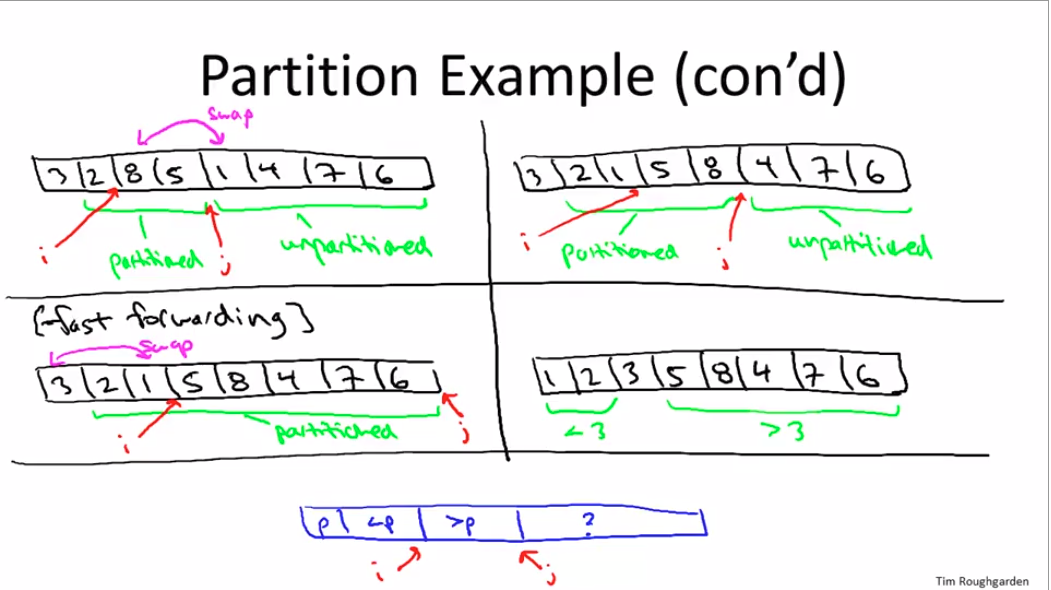 Partition Example (con'd)
swap
3 2 8 5 1 4 7 6
i partitioned j unpartitioned
3 2 1 5 8 4 7 6
i partitioned j unpartitioned
[fast forwarding]
swap
3 2 1 5 8 4 7 6
i partitioned j
1 2 3 5 8 4 7 6
< 3 > 3
p <p >p ?
i j
Tim Roughgarden